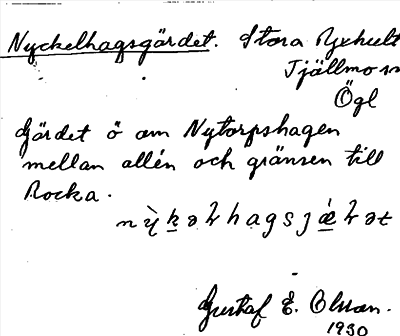 Nyckelhagsgärdet. Stora Ryxhult
Tjällmo sn
Ögl
Gärdet ö om Nytorpshagen
mellan allén och gränsen till
Rocka.
Gustaf E. Olsson.
1930